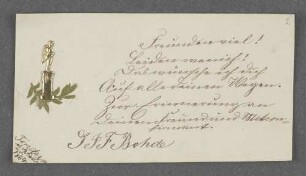 Freunden viel!
Leiden wenig!
Das wünsche ich dich
Auf alle deinen Wegen.
Zur Erinnerung an
Deinen Freund und
J. F. F. Bohde